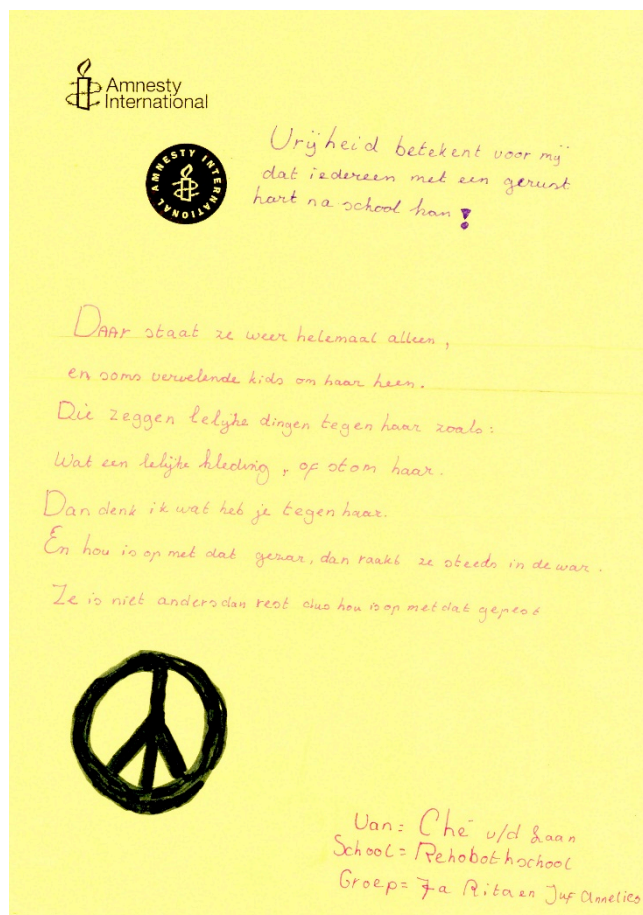 Amnesty
International
AMNESTY INTERNATIONAL
Vrijheid betekent voor mij
dat iedereen met een gerust
hart na school kan!
Daar staat ze weer helemaal alleen,
en soms vervelende kids om haar heen.
Die zeggen lelijke dingen tegen haar zoals:
Wat een lelijke kleding, of stom haar.
Dan denk ik wat heb je tegen haar.
En hou is op met dat gezar, dan raakt ze steeds in de war.
Ze is niet anders dan rest dus hou is op met dat gepest
Van= Ché v/d Laan
School= Rehobothschool
Groep= 7a Rita en Juf Annelies